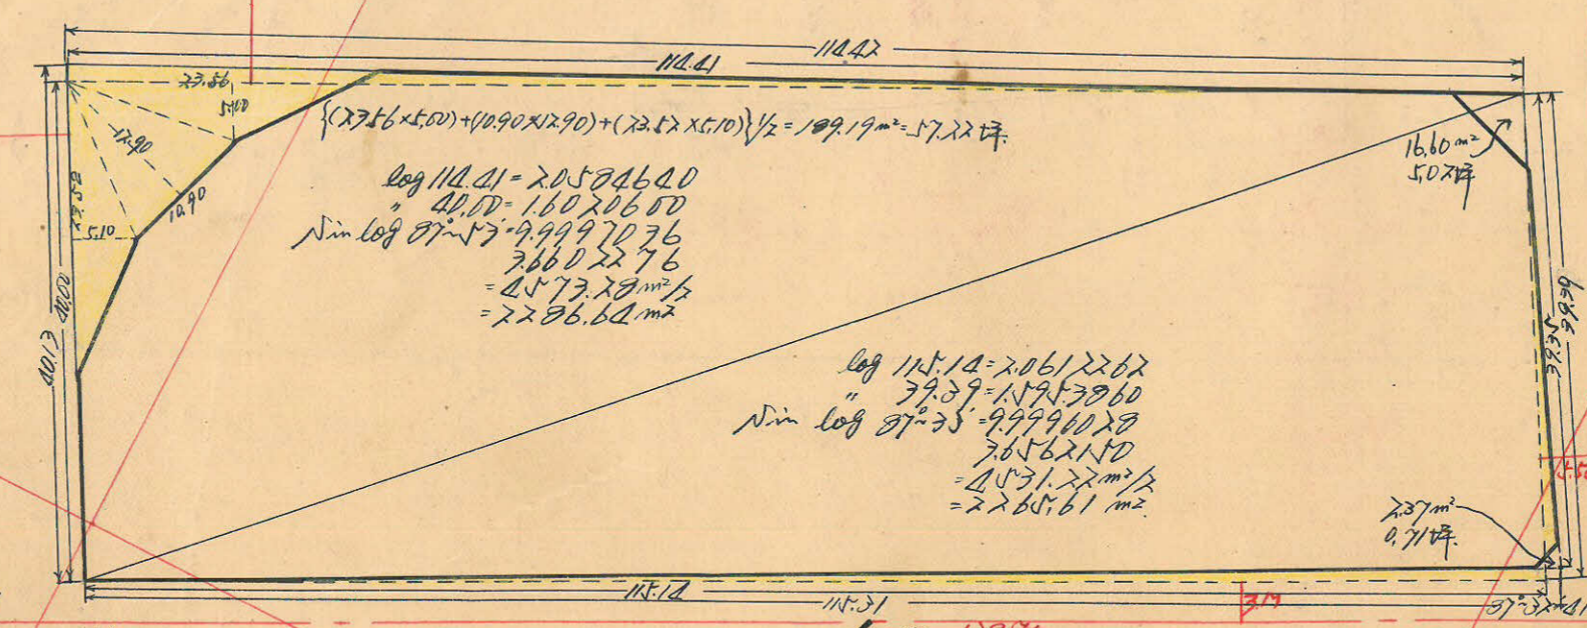 114.42
114.41
23.56
5.00
12.90
10.90
23.52
5.10
40.13
40.00
{(23.56×5.00)+(10.90×12.90)+(23.52×5.10)}1/2=189.19m²=57.22坪.
log 114.41=2.0584640
〃 40.00=1.6020600
Sin log 87°~53'=9.9997036
3.6602276
=4573.28m²/2
=2286.64m²
log 115.14=2.0612262
〃 39.39=1.5953860
Sin log 87°~33'=9.9996028
3.6562150
=4531.22m²/2
=2265.61 m²
16.60m²
5.02坪
39.35
39.39
5.50
2.37m²
0.71坪.
115.14
115.31
87°~32'~41